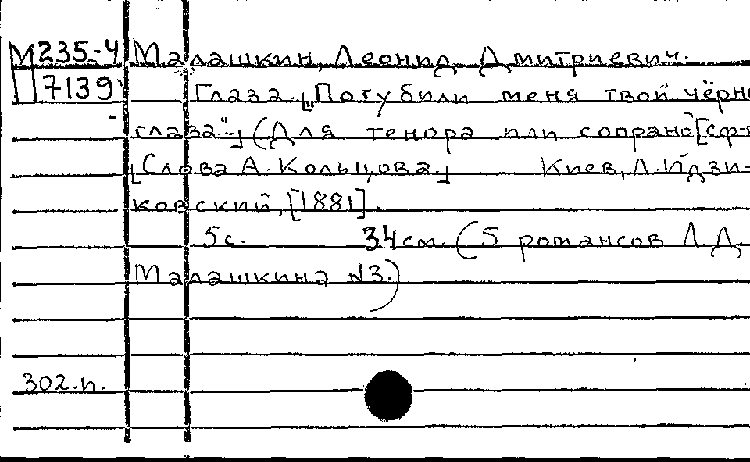 М235-4 Малашкин, Леонид Дмитриевич.
П7139 Глаза. [„Погубили меня твои чёрн
глаза"] (Для тенора или сопрано [сф-
[Слова А. Кольцова.] Киев, Л. Идзи-
ковский, [1881].
5с. 34см. (5 романсов Л.Д.
Малашкина №3.)
302.п.